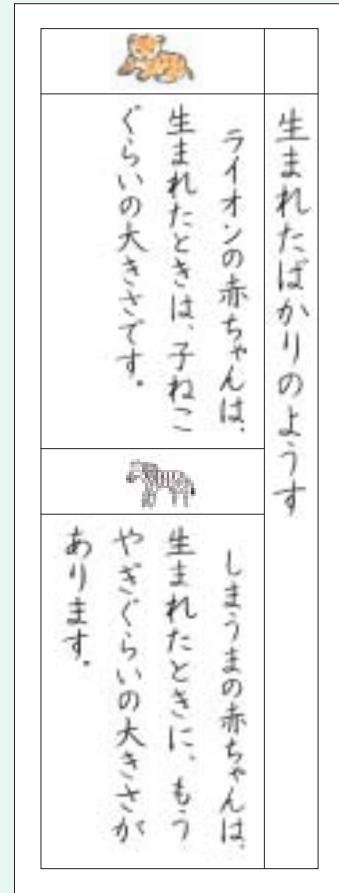 生まれたばかりのようす
ライオンの赤ちゃんは、
生まれたときは、子ねこ
ぐらいの大きさです。
しまうまの赤ちゃんは、
生まれたときに、もう
やぎぐらいの大きさが
あります。